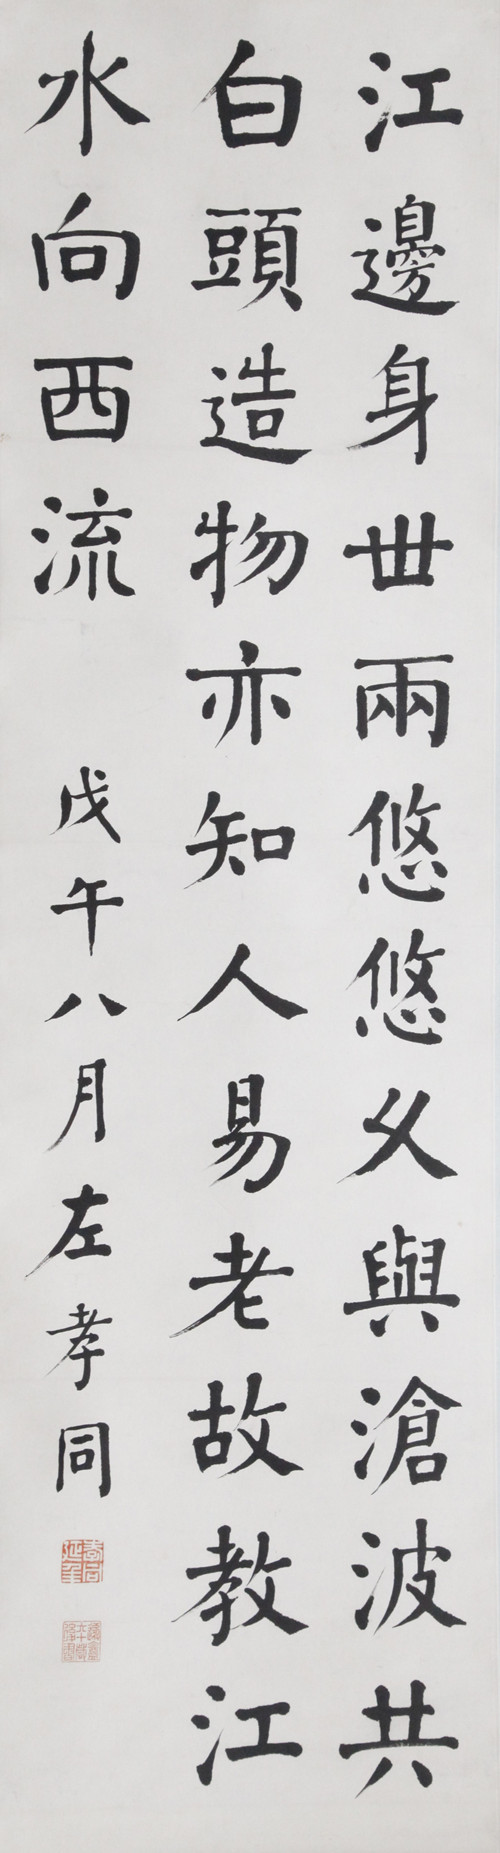 江邊身世兩悠悠久與滄波共
白頭造物亦知人易老故教江
水向西流
戊午八月左孝同
孝同延年